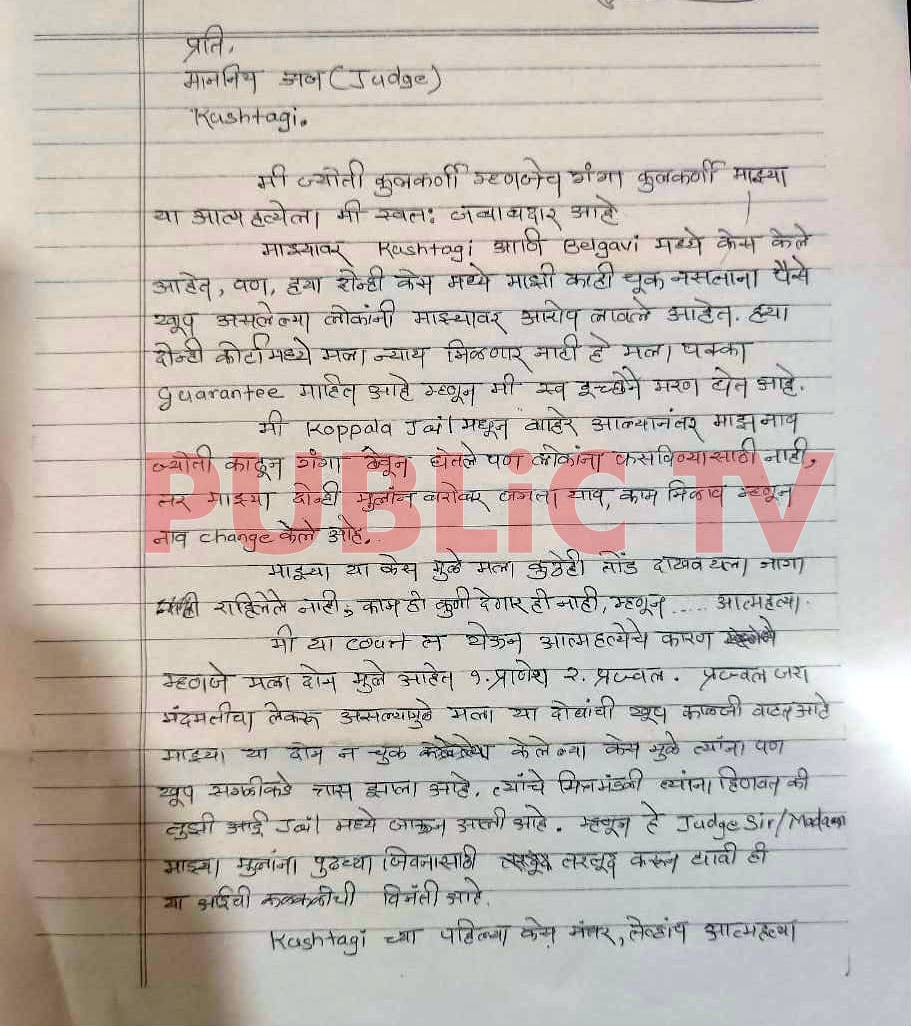 प्रति,
माननिय जज (Judge)
Kushtagi.
मी ज्योती कुलकर्णी म्हणजेच गंगा कुलकर्णी माझ्या
या आत्महत्येला मी स्वतः जबाबदार आहे
माझ्यावर Kushtagi आणि Belgavi मध्ये केस केले
आहेत, पण, ह्या दोन्ही केस मध्ये माझी काही चूक नसताना पैसे
खूप असलेल्या लोकांनी माझ्यावर आरोप लावले आहेत. ह्या
दोन्ही कोर्टामध्ये मला न्याय मिळणार नाही हे मला पक्का
guarantee माहित आहे म्हणून मी स्व इच्छेने मरण घेत आहे.
मी Koppala Jail मधून बाहेर आल्यानंतर माझ नाव
ज्योती काढून गंगा ठेवून घेतले पण लोकांना फसविण्यासाठी नाही,
तर माझ्या दोन्ही मुलांन बरोबर जगता याव, काम मिळाव म्हणून
नाव change केले आहे..
माझ्या या केस मुळे मला कुठेही तोंड दाखवायला जागा
राहिलेले नाही, काम ही कुणी देणार ही नाही, म्हणून ..... आत्महत्या.
मी या court त येऊन आत्महत्येचे कारण
म्हणजे मला दोन मुले आहेत १. प्राणेश २. प्रज्वल. प्रज्वल जरा
मंदमतीचा लेकरू असल्यामुळे मला या दोघांची खूप काळजी वाटत आहे
माझ्या या दोन न चुक केलेल्या केस मुळे त्यांना पण
खूप सगळीकडे त्रास झाला आहे. त्यांचे मित्रमंडळी त्यांना हिणवत की
तुझी आई Jail मध्ये जाऊन आली आहे. म्हणून हे Judge Sir/Madam
माझ्या मुलांना पुढच्या जिवनासाठी तरतूद करून द्यावी ही
या आईची कळकळीची विनंती आहे.
Kushtagi च्या पहिल्या केस नंतर, तेव्हांच आत्महत्या
PUBLiC TV